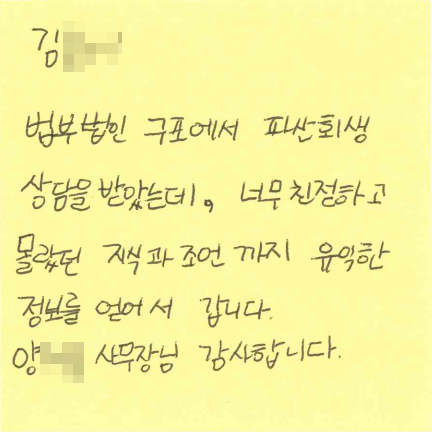 김
법부법인 구포에서 파산회생
상담을 받았는데, 너무 친절하고
몰랐던 지식과 조언 까지 유익한
정보를 얻어서 갑니다.
양 사무장님 감사합니다.